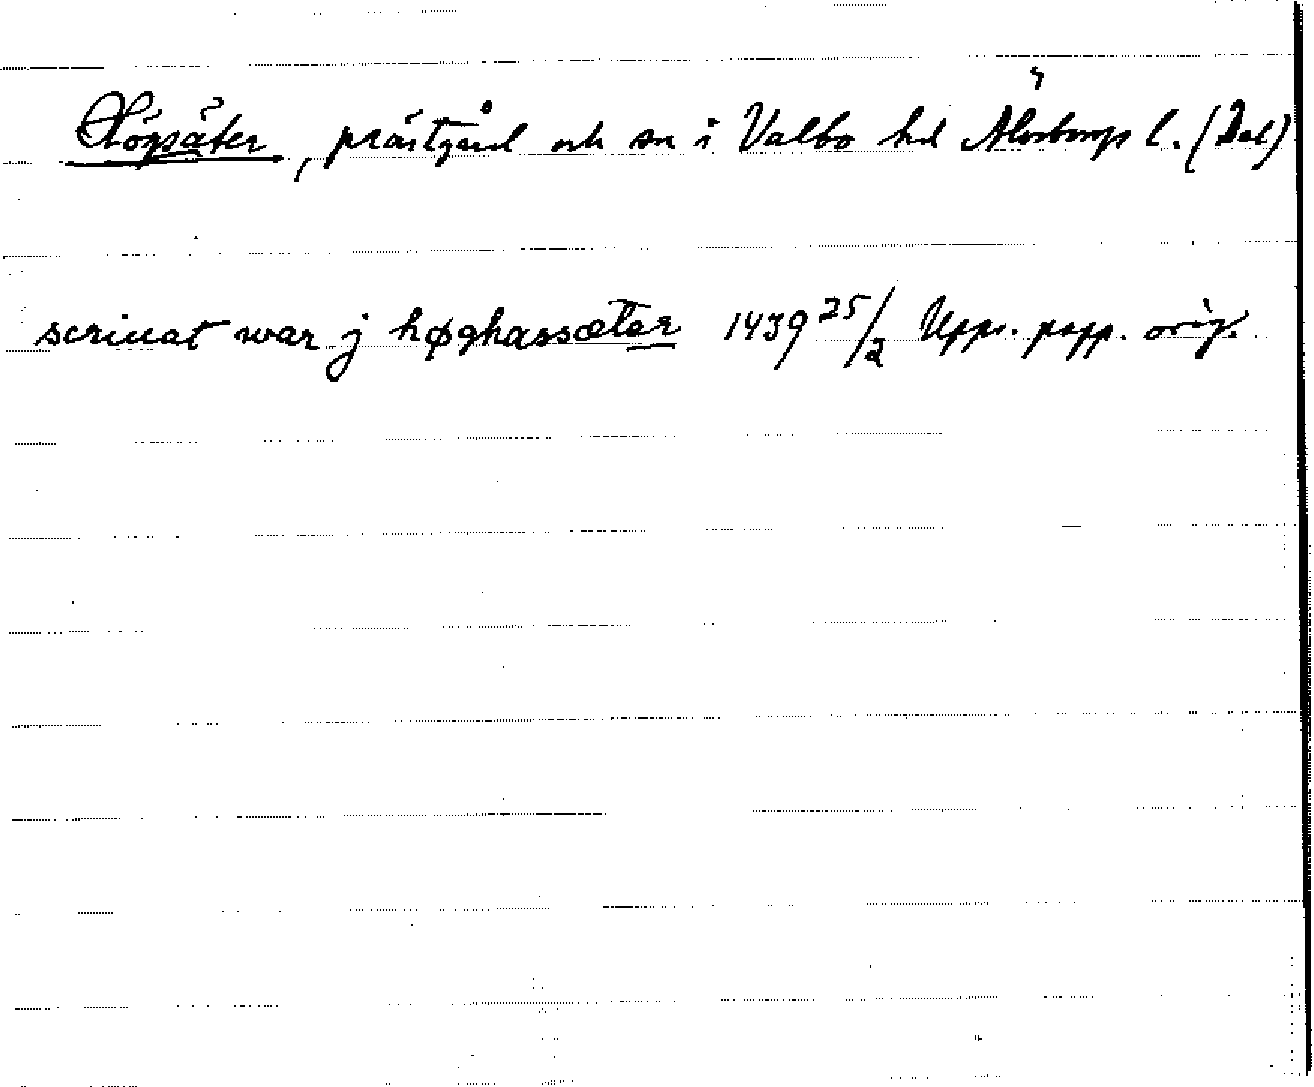 Högsäter, prästgård och sn i Valbo hd Älvsborgs l. (Dal)
scriuat war j høghassæter 1439 25/2 Upps. papp. orig.